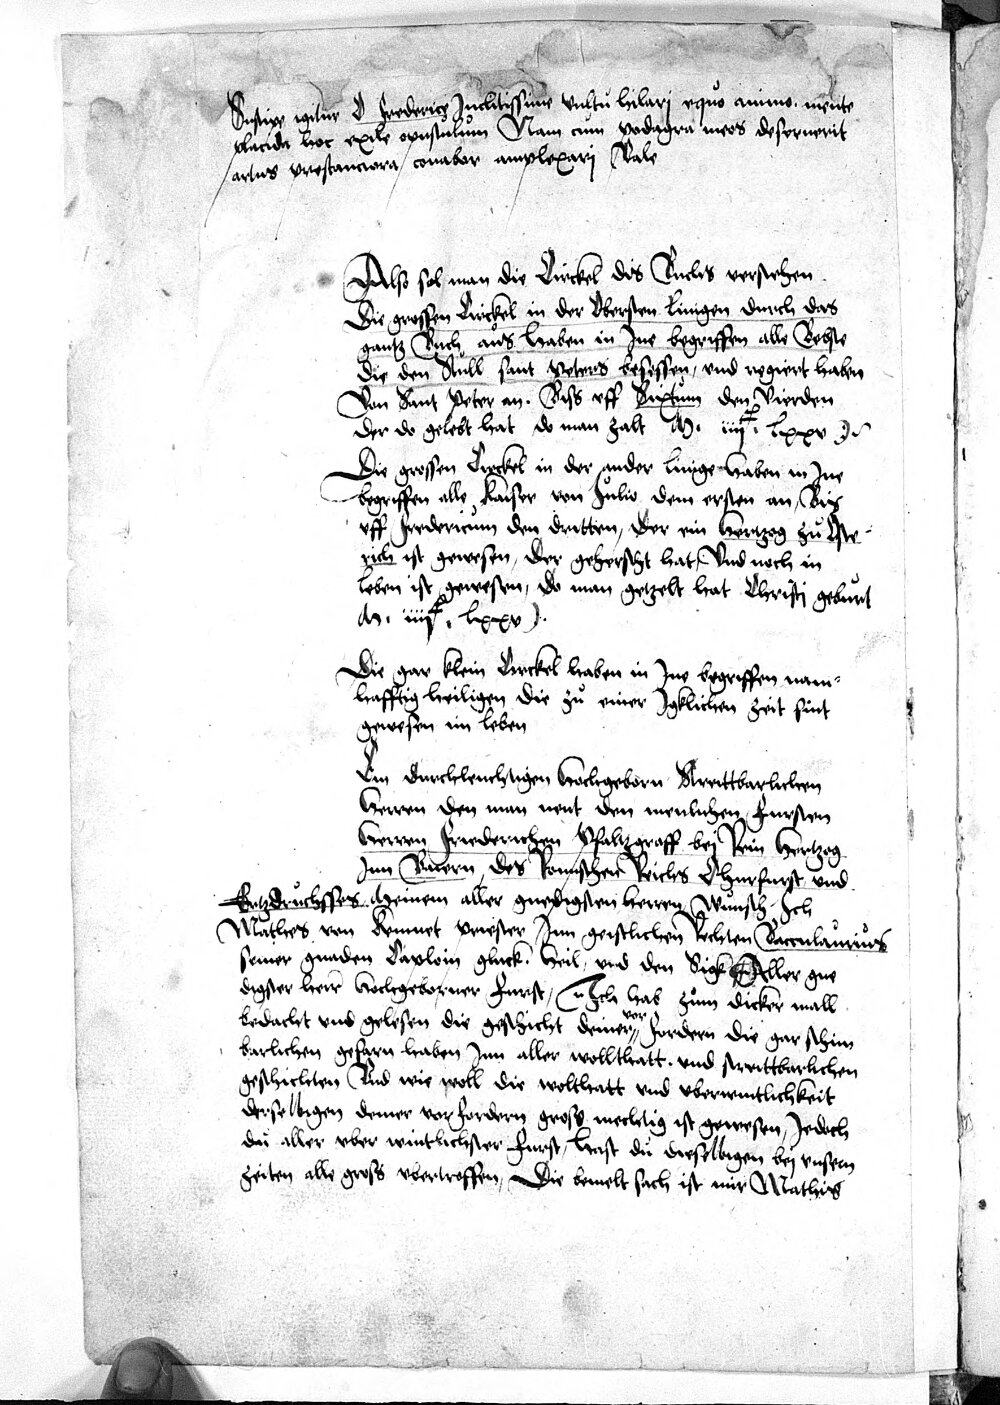 Suscipe igitur O Frederice Inclitissime vultu hilari equo animo. mente
placida hoc exile opusculum Nam cum podagra meos deseruerit
artus prestanciora conabor amplexari Vale
Also sol man die Circkel dis Buchs verstehen.
Die grossen Circkel in der Obersten linigen durch das
gantz Buch aus haben in Ine begriffen alle Bebste
die den Stull sant Peters besessen, vnd regiert haben
Von Sant Peter an. Biss vff Sixtum den Vierden
der do gelebt hat do man zalt M. iiijc. lxxv
Die grossen Circkel in der ander linige haben in Ine
begriffen alle Kaiser von Julio dem ersten an, Bis
vff Fredericum den dritten, der ein Hertzog zu Oste-
rich ist gewesen, Der gehersht hat, Vnd noch in
leben ist gewesen, do man getzelt hat Christi geburt
M. iiijc. lxxv
Die gar klein Circkel haben in Ine begriffen nam-
hafftig heiligen die zu einer Igklichen zeit sint
gewesen im leben
Em durchleuchtigen Hochgeborn Streittbarlichen
Herren den man nent den menlichen Fursten
Herren Friederichen Pfaltzgraff bej Rein Hertzog
Inn Baiern, des Romischen Reichs Churfurst vnd
Ertzdruchsses Meinem aller gnedigsten Herren Wunsch Ich
Mathes von Kemnet priester Inn geistlichen Rechten Baccalaurius
seiner gnaden Caploin gluck. Heil, vnd den Sigk Aller gne
digster herr Hochgeborner Furst, Ich hab zum dicker mall
bedacht vnd gelesen die geschicht deiner vor fordern die gar schim
barlichen gefarn haben Inn aller wollthatt. vnd streittbarlichen
geschichten Vnd wie woll die wolthatt vnd vberwintlichkeit
derselbigen deiner vorfordern gross mechtig ist gewesen, Jedoch
du aller vber wintlichster Furst, hast du dieselbigen bej vnsern
zeiten alle gross vbertroffen, Die bemelt sach ist mir Mathis